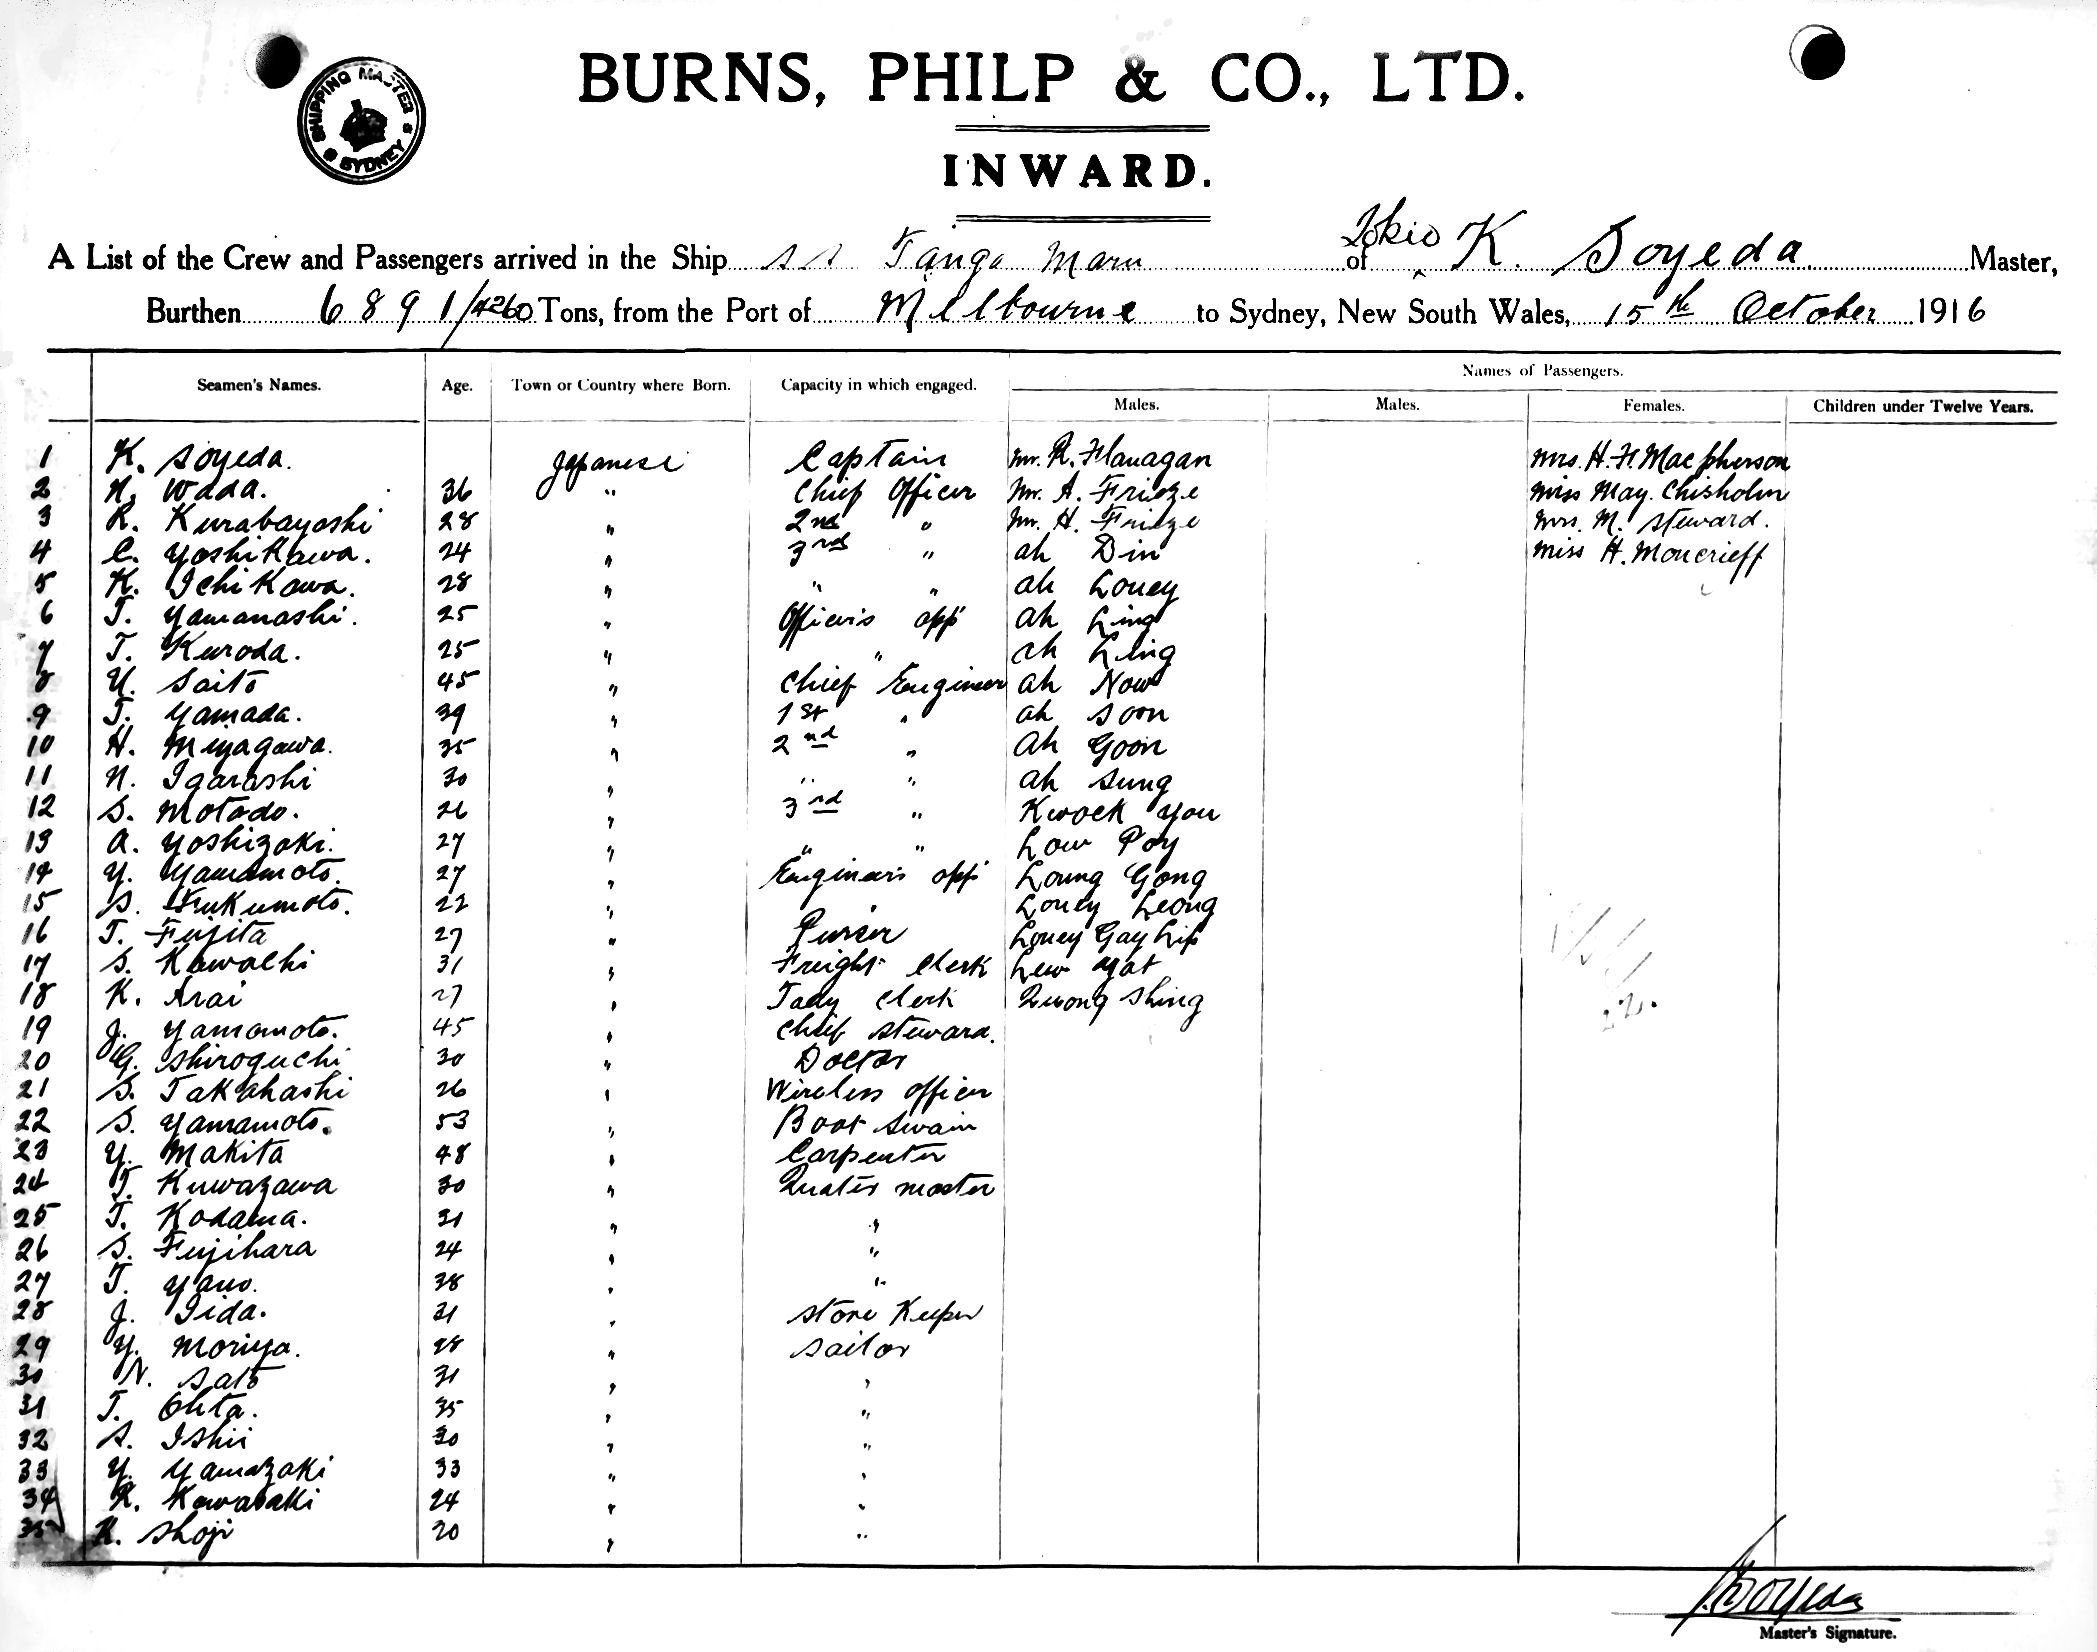 SHIPPING MASTER
SYDNEY
BURNS, PHILP & CO., LTD.
INWARD.
A List of the Crew and Passengers arrived in the Ship SS Tango Maru of Tokio K. Soyeda Master,
Burthen 6891/4260 Tons, from the Port of Melbourne to Sydney, New South Wales, 15th October 1916
Names of Passengers.
Seamen's Names. Age. Town or Country where Born. Capacity in which engaged. Males. Males. Females. Children under Twelve Years.
1 K. Soyeda. Japanese Captain Mr. R. Flanagan Mrs. H. F. Macpherson
2 N. Wada. 36 " Chief Officer Mr. A. Frieze Miss May. Chisholm
3 R. Kurabayashi 28 " 2nd " Mr. H. Frieze Mrs. M. Steward.
4 C. Yoshikawa. 24 " 3rd " Ah Din Miss H. Moncrieff
5 K. Ichikawa. 28 " " " Ah Louey
6 T. Yamanashi. 25 " Officer's app Ah Ling
7 T. Kuroda. 25 " " Ah Ling
8 Y. Saito 45 " Chief Engineer Ah Now
9 T. Yamada. 39 " 1st " Ah Soon
10 H. Miyagawa. 35 " 2nd " Ah Goon
11 N. Igarashi 30 " " " Ah Sung
12 S. Motodo. 26 " 3rd " Kwock You
13 A. Yoshizaki. 27 " " " Low Poy
14 Y. Yamamoto. 27 " Engineer's app Loung Gong
15 S. Fukumoto. 22 " " Louey Leong
16 T. Fujita 27 " Purser Louey Gay Lip
17 S. Kawachi 31 " Freight Clerk Lew Yat
18 K. Arai 27 " Tally Clerk Quong Shing
19 J. Yamamoto. 45 " Chief Steward.
20 G. Shiroguchi 30 " Doctor
21 S. Takahashi 26 " Wireless officer
22 S. Yamamoto. 53 " Boat Swain
23 Y. Makita 48 " Carpenter
24 T. Kuwazawa 30 " Quater master
25 T. Kodama. 31 " "
26 S. Fujihara 24 " "
27 T. Yano. 38 " "
28 J. Iida. 31 " Store Keeper
29 Y. Moriya. 28 " Sailor
30 N. Sato 31 " "
31 T. Ohta. 35 " "
32 S. Ishii 30 " "
33 Y. Yamazaki 33 " "
34 K. Kawasaki 24 " "
35 K. Shoji 20 " "
K. Soyeda
Master's Signature.